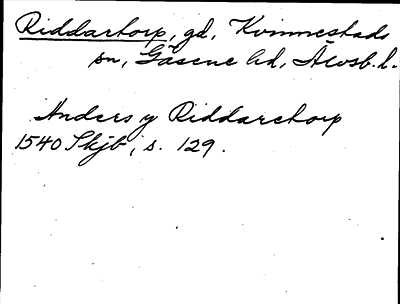 Riddartorp, gd, Kvinnestads
sn, Gäsene hd, Älvsb. l.
Anders y Riddaretorp
1540 Skjb, s. 129.